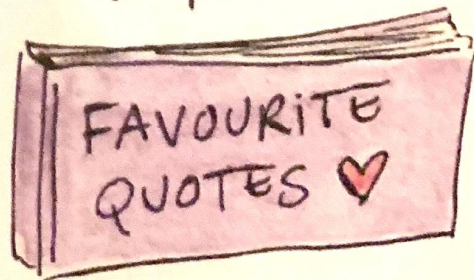 FAVOURiTE
QUOTES ♥